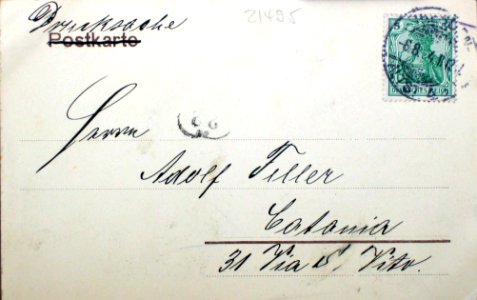 Drucksache
21495
Postkarte
Herrn
Adolf Filler
Catania
31 Via S. Vito.